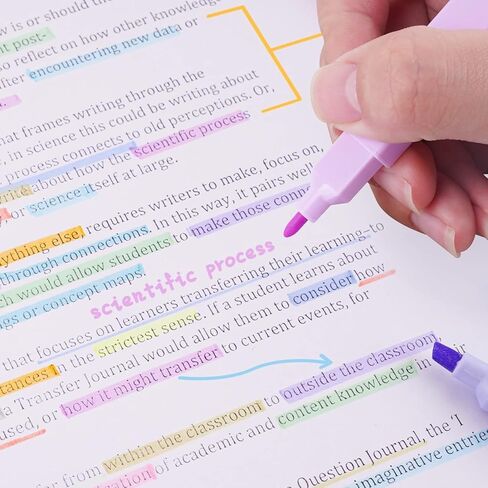 w is or should
how other knowledge
ent post-
so reflect on how other knowledge
After encountering new data or
that frames writing through the
, in science this could be writing about
process connects to old perceptions. Or,
about how the scientific process
or science itself at large.
anything else, requires writers to make, focus on,
through connections. In this way, it pairs well
would allow students to make those conn
gs or concept maps.
scientific process
that focuses on learners transferring their learning to
tances in the strictest sense. If a student learns about
a Transfer Journal would allow them to consider how
used, or how it might transfer to current events, for
far from within the classroom to outside the classroom,
ration of academic and content knowledge in
Question Journal, the 'I
imaginative entries